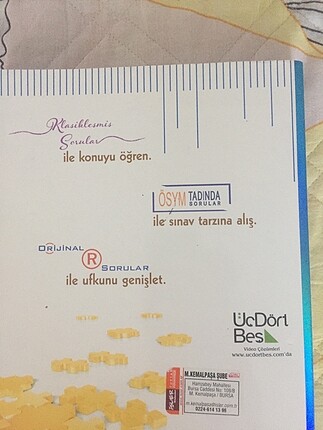 Klasikleşmiş
Sorular
ile konuyu öğren.
ÖSYM TADINDA
SORULAR
ile sınav tarzına alış.
ORİJİNAL
R
SORULAR
ile ufkunu genişlet.
ÜçDört
Beş
Video Çözümleri
www.ucdortbes.com'da
M.KEMALPAŞA ŞUBE
Hamzabey Mahallesi
Bursa Caddesi No:
M. Kemalpaşa / BURSA
0224 614 13 98